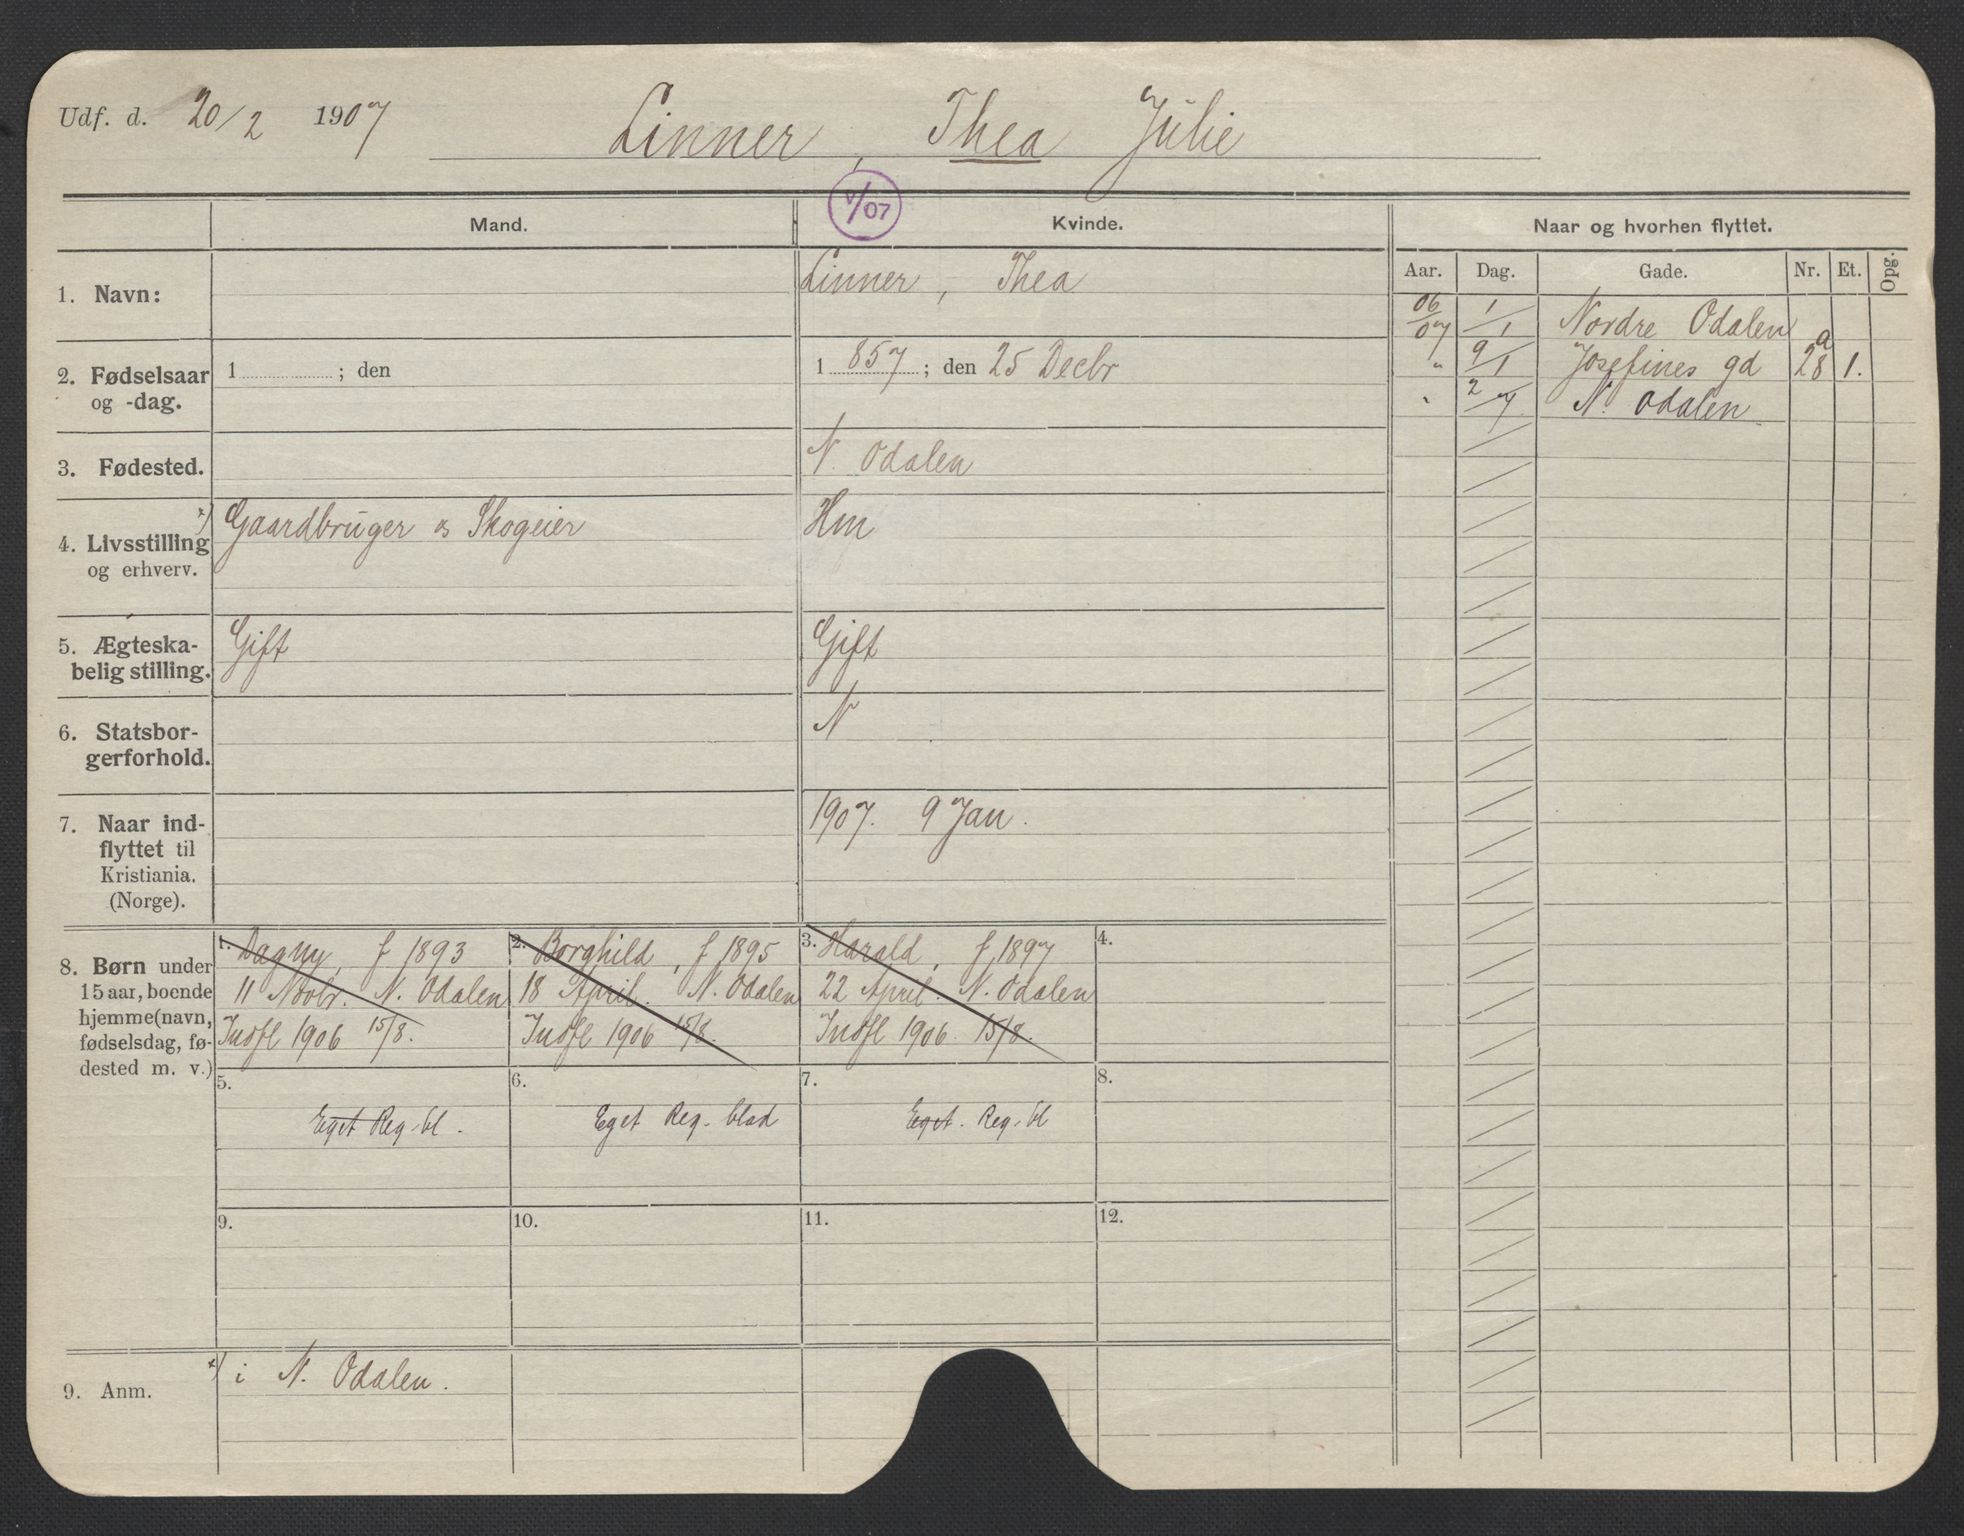 Udf. d. 20/2 1907 Linner, Thea Julie
V/07
Mand. Kvinde. Naar og hvorhen flyttet.
Aar. Dag. Gade. Nr. Et. Opg.
1. Navn: Linner, Thea
06/07 1/1 Nordre Odalen
" 9/1 Josefines gd 28a 1.
" 2/7 N. Odalen
2. Fødselsaar og -dag. 1 ; den 1857; den 25 Decbr
3. Fødested. N. Odalen
4. Livsstilling og erhverv. x) Gaardbruger & Skogeier Hm
5. Ægteska-
belig stilling. Gift Gift
6. Statsbor-
gerforhold. N
7. Naar ind-
flyttet til
Kristiania.
(Norge). 1907. 9 Jan.
8. Børn under
15 aar, boende
hjemme (navn,
fødselsdag, fø-
dested m. v.)
1. Dagny, f 1893
11 Novbr. N. Odalen
Indfl 1906 15/8.
2. Borghild, f 1895
18 April. N. Odalen
Indfl 1906 15/8.
3. Harald, f 1897
22 April. N. Odalen
Indfl 1906. 15/8.
4.
5. Eget Reg. bl.
6. Eget Reg. blad
7. Eget. Reg. bl
8.
9.
10.
11.
12.
9. Anm. x) i N. Odalen.